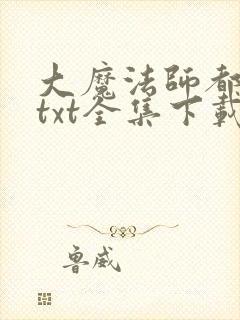 大魔法師都
txt全集下載
魯威